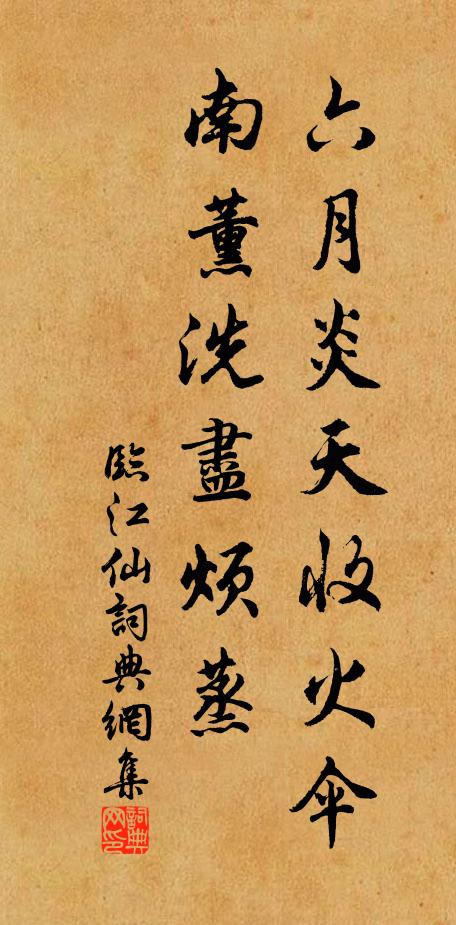 六月炎天收火傘
南薰洗盡煩蒸
臨江仙詞典網集
詞典网印